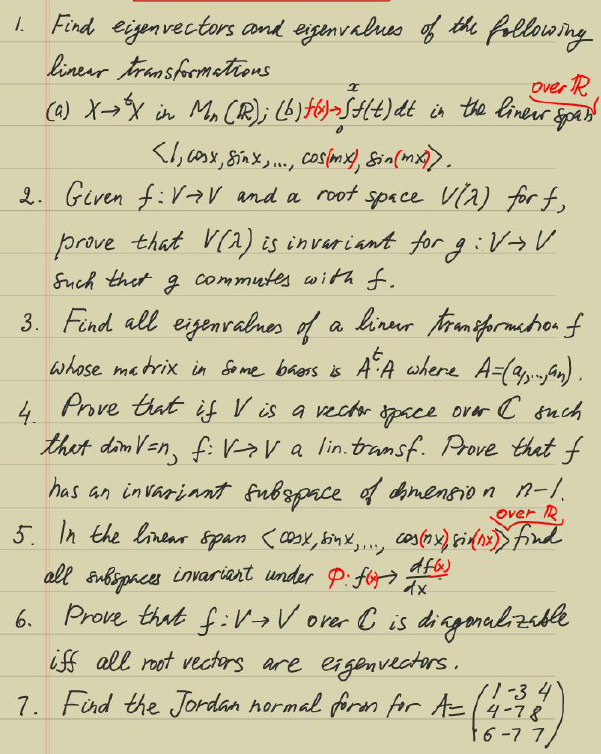 1. Find eigenvectors and eigenvalues of the following
linear transformations
over ℝ
(a) X→ᵗX in Mₙ(ℝ); (b) f(x)→∫₀ˣf(t)dt in the linear span
<1, cosx, sinx, ..., cos(mx), sin(mx)>.
2. Given f: V→V and a root space V(λ) for f,
prove that V(λ) is invariant for g: V→V
such that g commutes with f.
3. Find all eigenvalues of a linear transformation f
whose matrix in some basis is Aᵗ·A where A=(a₁,...,aₙ).
4. Prove that if V is a vector space over ℂ such
that dimV=n, f: V→V a lin. transf. Prove that f
has an invariant subspace of dimension n-1.
over ℝ
5. In the linear span <cosx, sinx, ..., cos(nx), sin(nx)> find
all subspaces invariant under φ: f(x)→ df(x)/dx.
6. Prove that f: V→V over ℂ is diagonalizable
iff all root vectors are eigenvectors.
7. Find the Jordan normal form for A=
(1 -3 4
4 -7 8
6 -7 7)